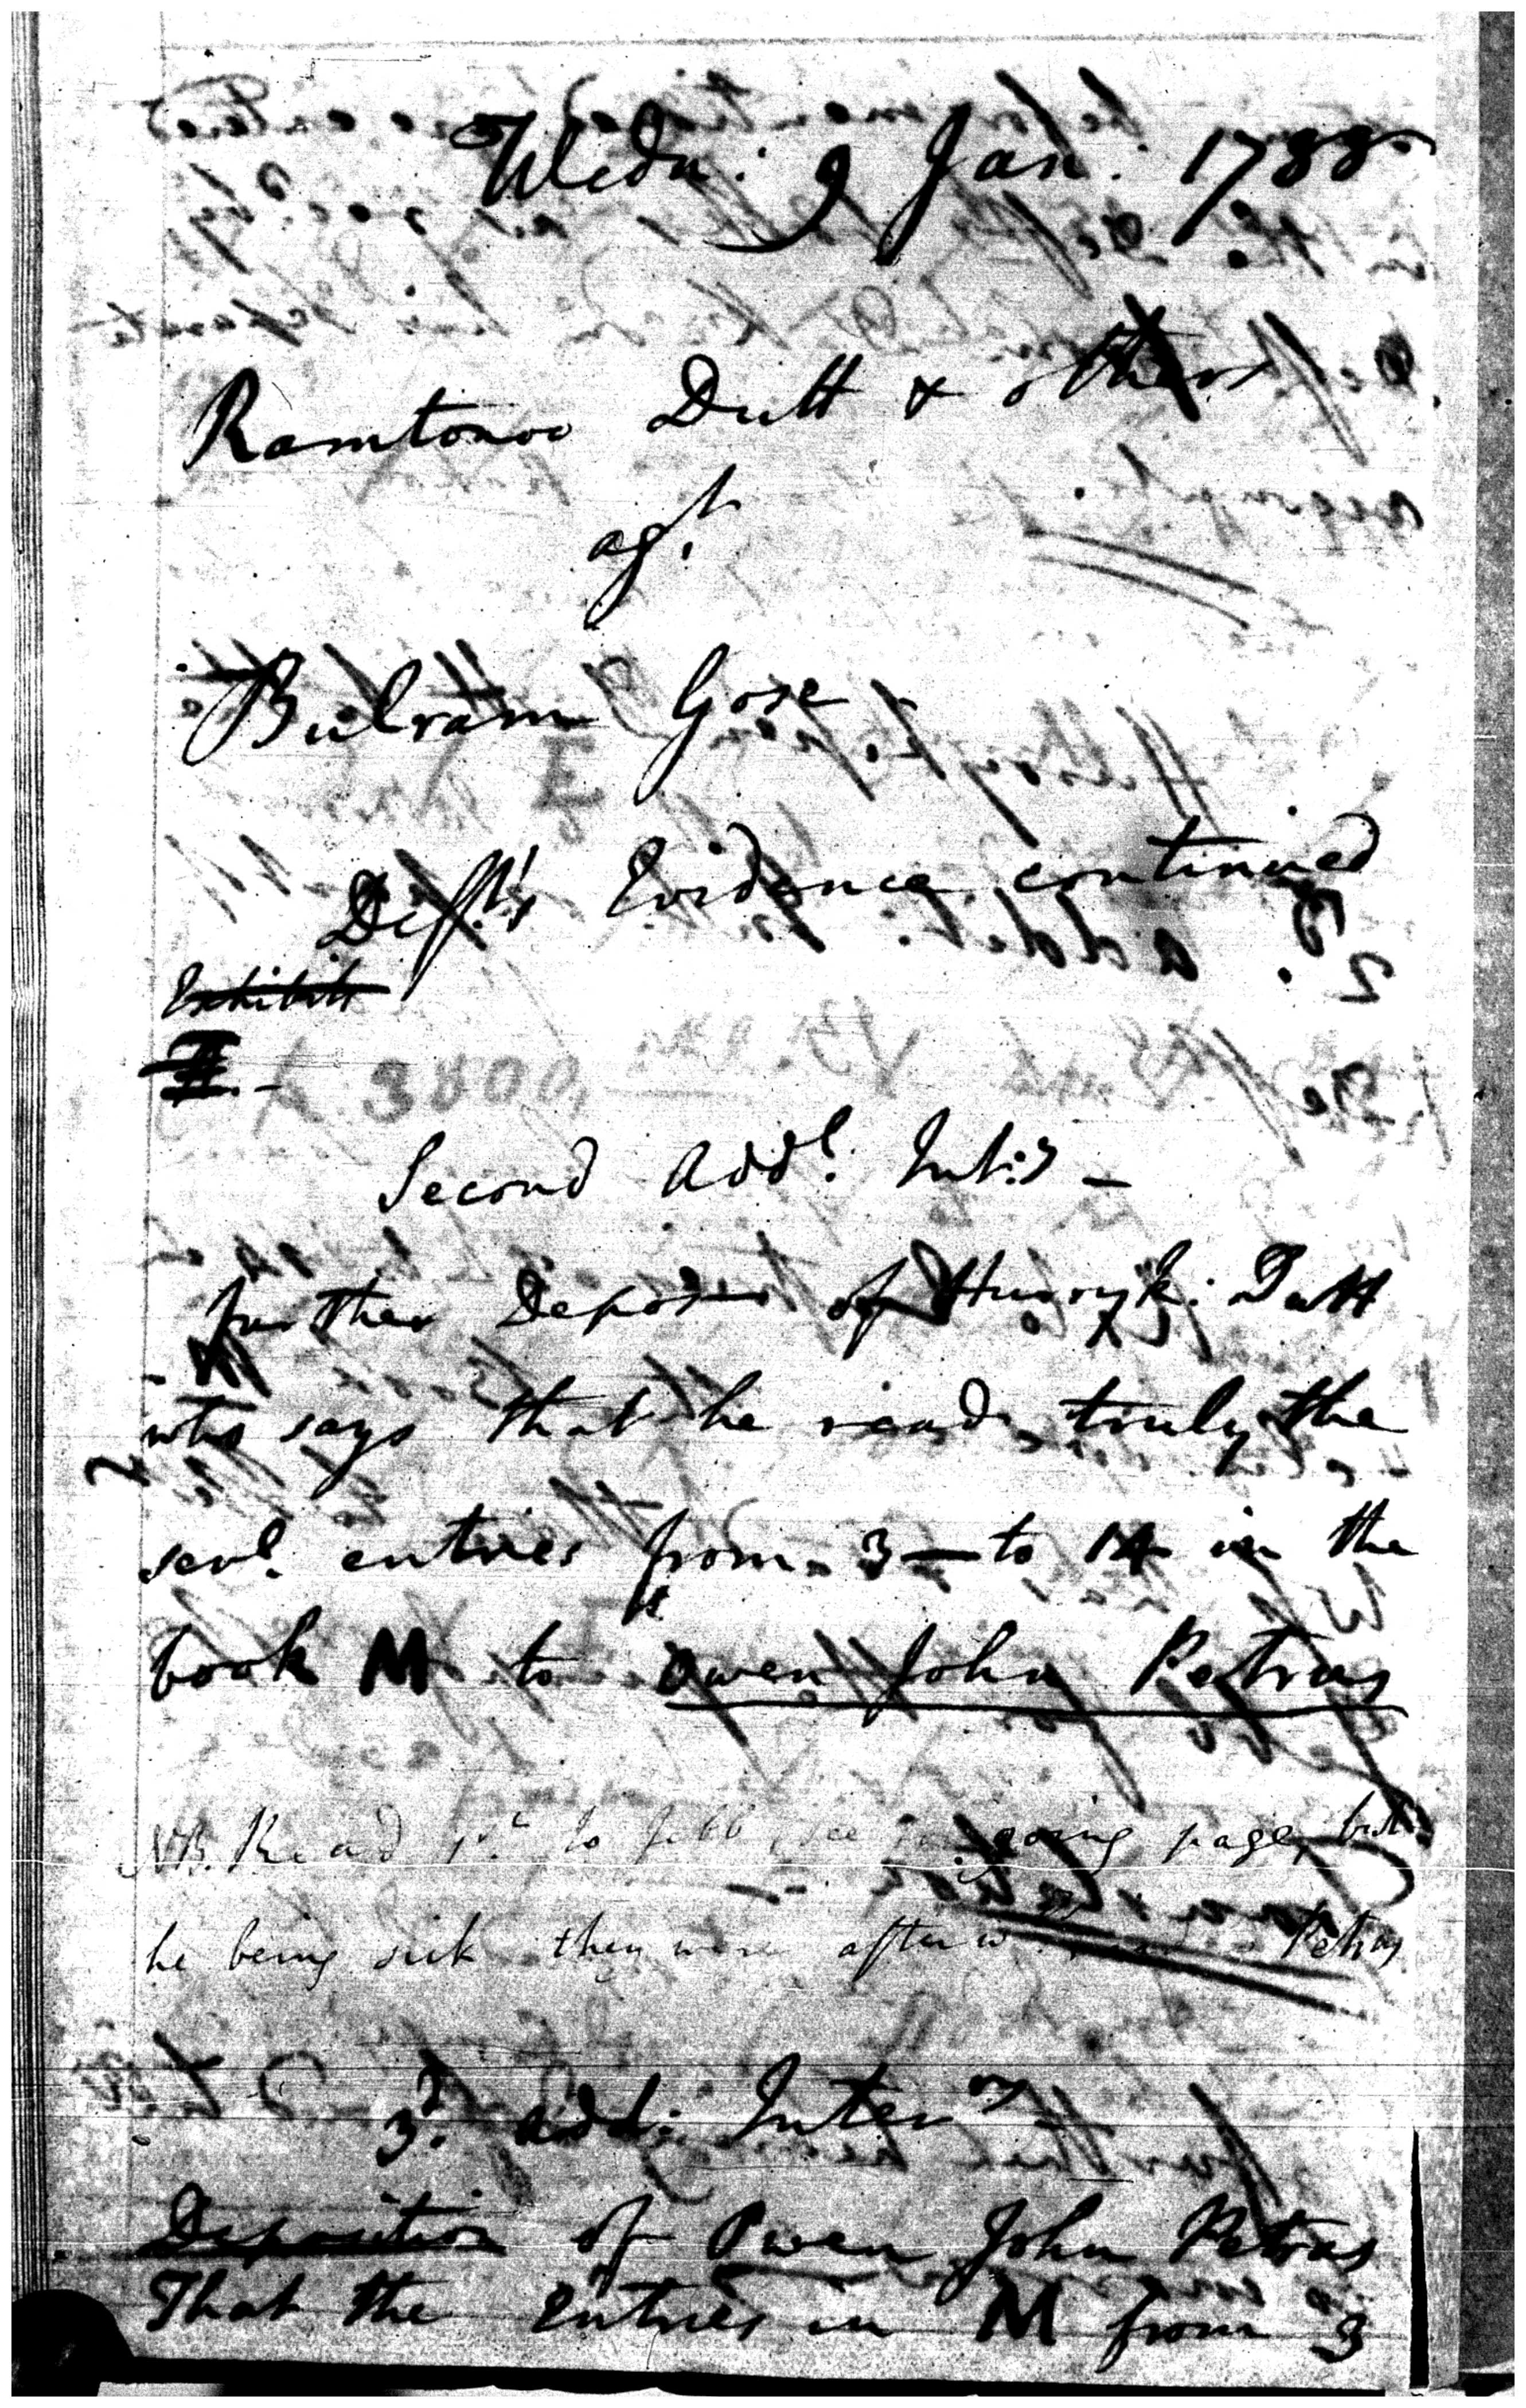 Wedn: 9 Jan: 1788
Ramtonoo Dutt & others
agt.
Bulram Gose -
Deft.'s Evidence continued
Exhibits
Second Addl. Inty. -
further Deposn of Hurryk: Dutt
who says that he read truly the
sevl. entries from 3 - to 14 in the
book M to Owen John Petrus
NB. Read 1st. to Jebb, see going page, but
he being sick they were afterw Petrus
3d. add: Interry -
Deposition of Owen John Petrus
That the Entries in M from 3